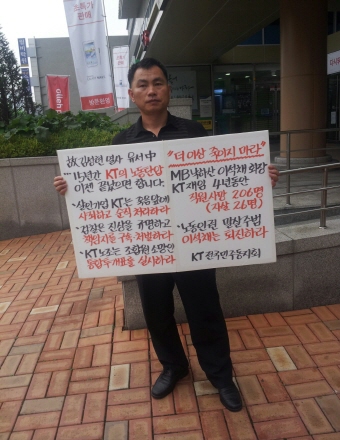 olleh
故김성현 열사 유서中
15년간 KT의 노동탄압
이젠 끝났으면 합니다.
·살인기업 KT는 죽음앞에
사죄하고 순직 처리하라
·검찰은 진상을 규명하고
책임자를 구속·처벌하라
·KT노조는 조합원 소망인
통합투개표를 실시하라
"더이상 죽이지 마라"
MB낙하산 이석채 회장
KT재임 4년동안
직원사망 206명
(자살 26명)
·노동인권 말살주범
이석채는 퇴진하라
KT 전국민주동지회